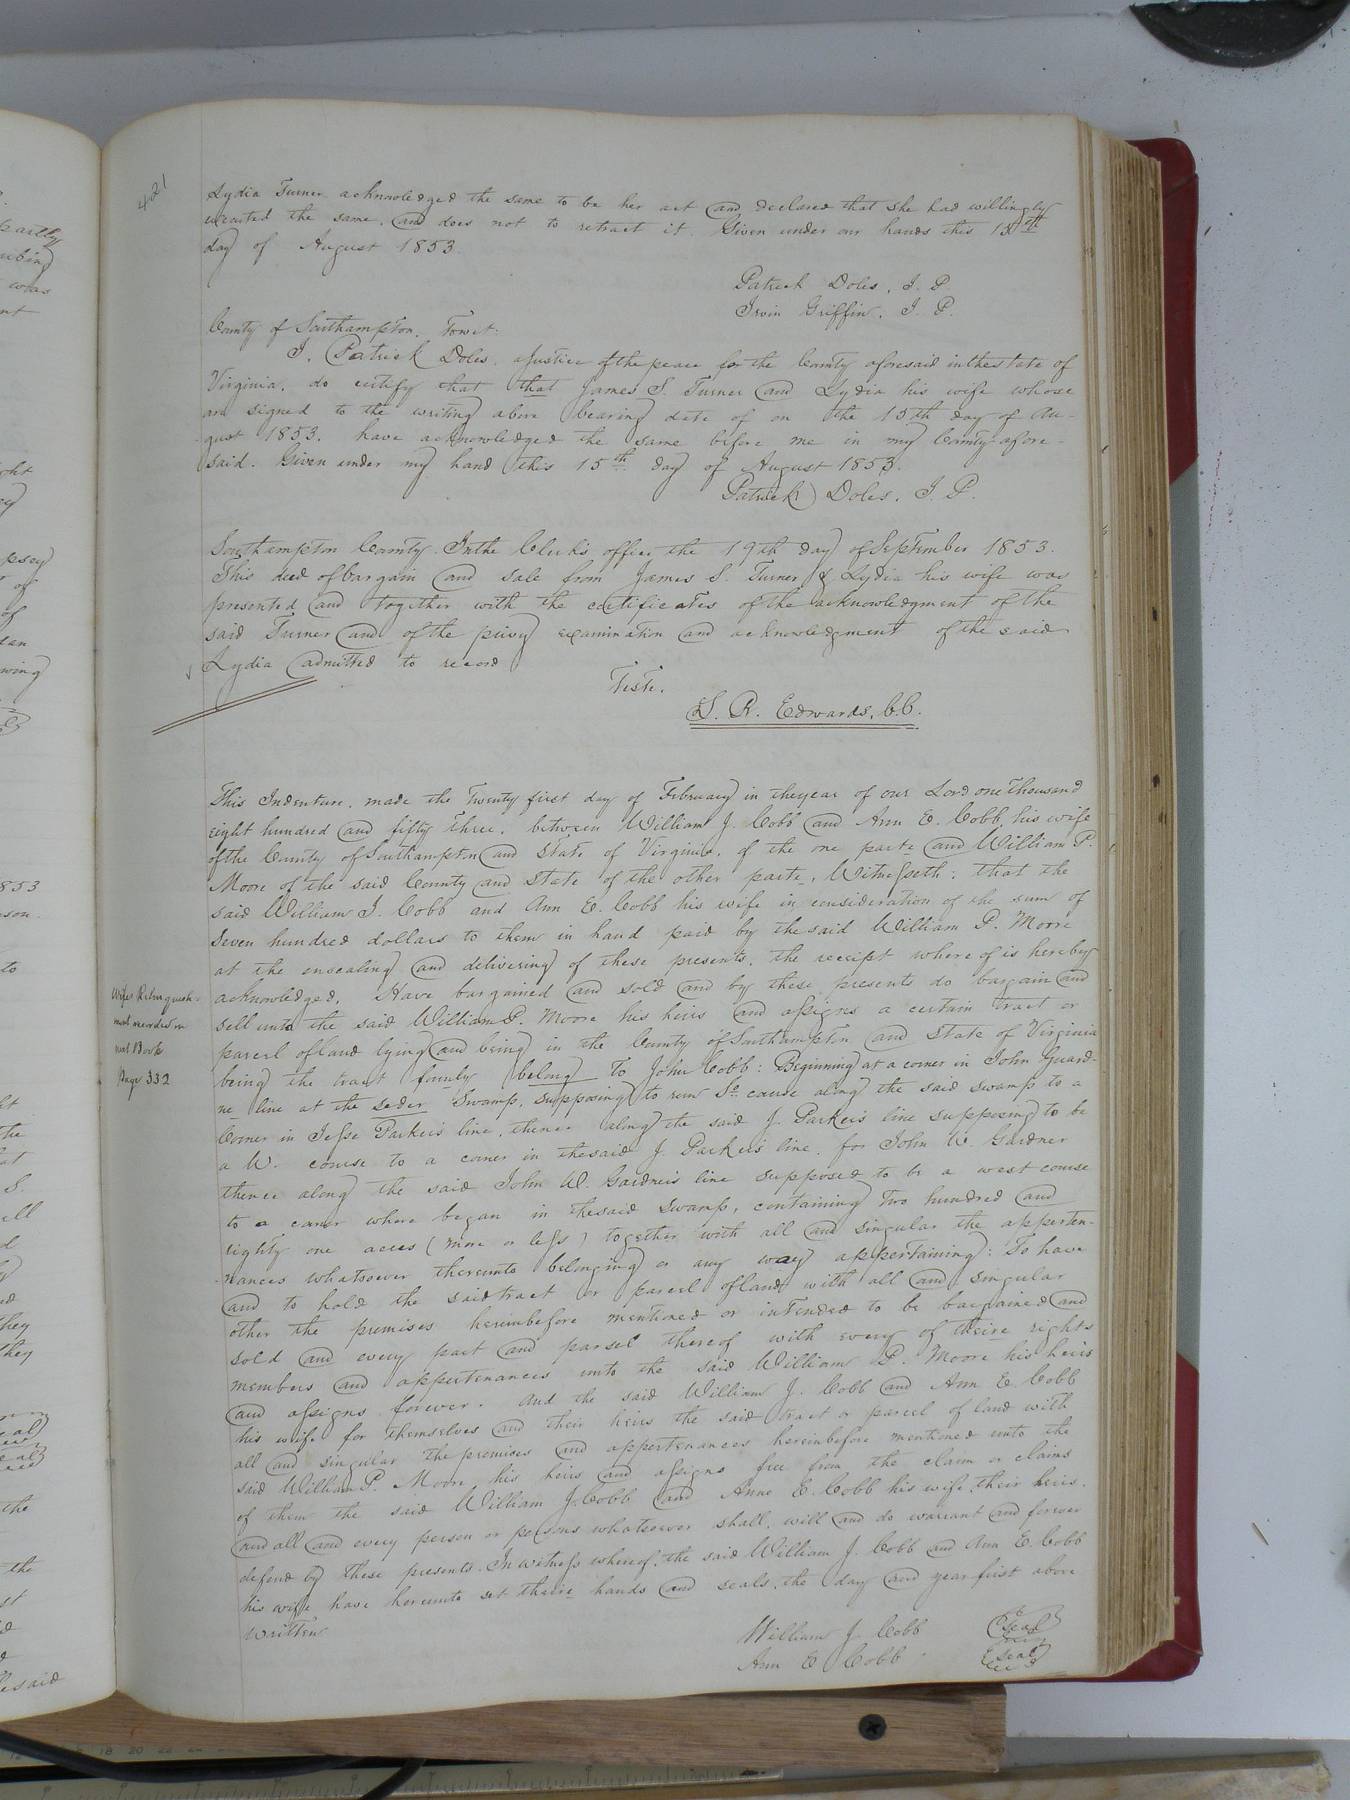 421
Lydia Turner acknowledged the same to be her act and declared that she had willingly
executed the same. and does not to retract it. Given under our hands this 15th
day of August 1853.
Patrick Doles, J. P.
Irvin Griffin, J. P.
County of Southampton. Towit:
I, Patrick Doles. a Justice of the peace for the County aforesaid in the state of
Virginia, do certify that that James S. Turner and Lydia his wife whose
are signed to the writing above bearing date of on the 15th day of Au-
gust 1853. have acknowledged the same before me in my County afore-
said. Given under my hand this 15th day of August 1853.
Patrick Doles. J. P.
Southampton County. In the Clerk's office the 19th day of September 1853.
This deed of bargain and sale from James S. Turner & Lydia his wife was
presented and together with the certificates of the acknowledgment of the
said Turner and of the privy examination and acknowledgment of the said
Lydia admitted to record
Teste.
L. R. Edwards, C.C.
This Indenture, made the Twenty first day of February in the year of our Lord one Thousand
eight hundred and fifty three, between William J. Cobb and Ann E. Cobb, his wife
of the County of Southampton and State of Virginia, of the one parte and William P.
Moore of the said County and State of the other parte, Witnesseth: that the
said William J. Cobb and Ann E. Cobb his wife in consideration of the sum of
Seven hundred dollars to them in hand paid by the said William P. Moore
at the ensealing and delivering of these presents, the receipt where of is hereby
acknowledged, Have bargained and sold and by these presents do bargain and
sell unto the said William P. Moore his heirs and assigns a certain tract or
parcel of land lying and being in the County of Southampton and State of Virginia
being the tract belong To John Cobb: Beginning at a corner in John Guard-
ne line at the seder Swamp, supposing to run So. course along the said swamp to a
Corner in Jesse Parker's line, thence along the said J. Parker's line supposing to be
a W. course to a corner in the said J. Parker's line, for John W. Gardner
thence along the said John W. Gardner's line supposed to be a west course
to a corner where began in the said swamp, containing Two hundred and
eighty one acres (more or less) together with all and singular the apperten-
nances whatsoever thereunto belonging or any way appertaining: To have
and to hold the said tract or parcel of land with all and singular
other the premises hereinbefore mentioned or intended to be bargained and
sold and every part and parsel thereof with every of theire rights
members and appertenances unto the said William P. Moore his heirs
and assigns forever. And the said William J. Cobb and Ann E. Cobb
his wife for themselves and their heirs the said tract or parcel of land with
all and singular the premises and appertenances hereinbefore mentioned unto the
said William P. Moore his heirs and assigns free from the claim or claims
of them the said William J. Cobb and Anne E. Cobb his wife, their heirs.
and all and every person or persons whatsoever shall, will and do warrant and forever
defend by these presents. In witness whereof, the said William J. Cobb and Ann E. Cobb
his wife have hereunto set theire hands and seals, the day and year first above
written
William J. Cobb Seal
Ann E Cobb Seal
Wifes Relinquish-
ment recorded in
next Book
Page 332